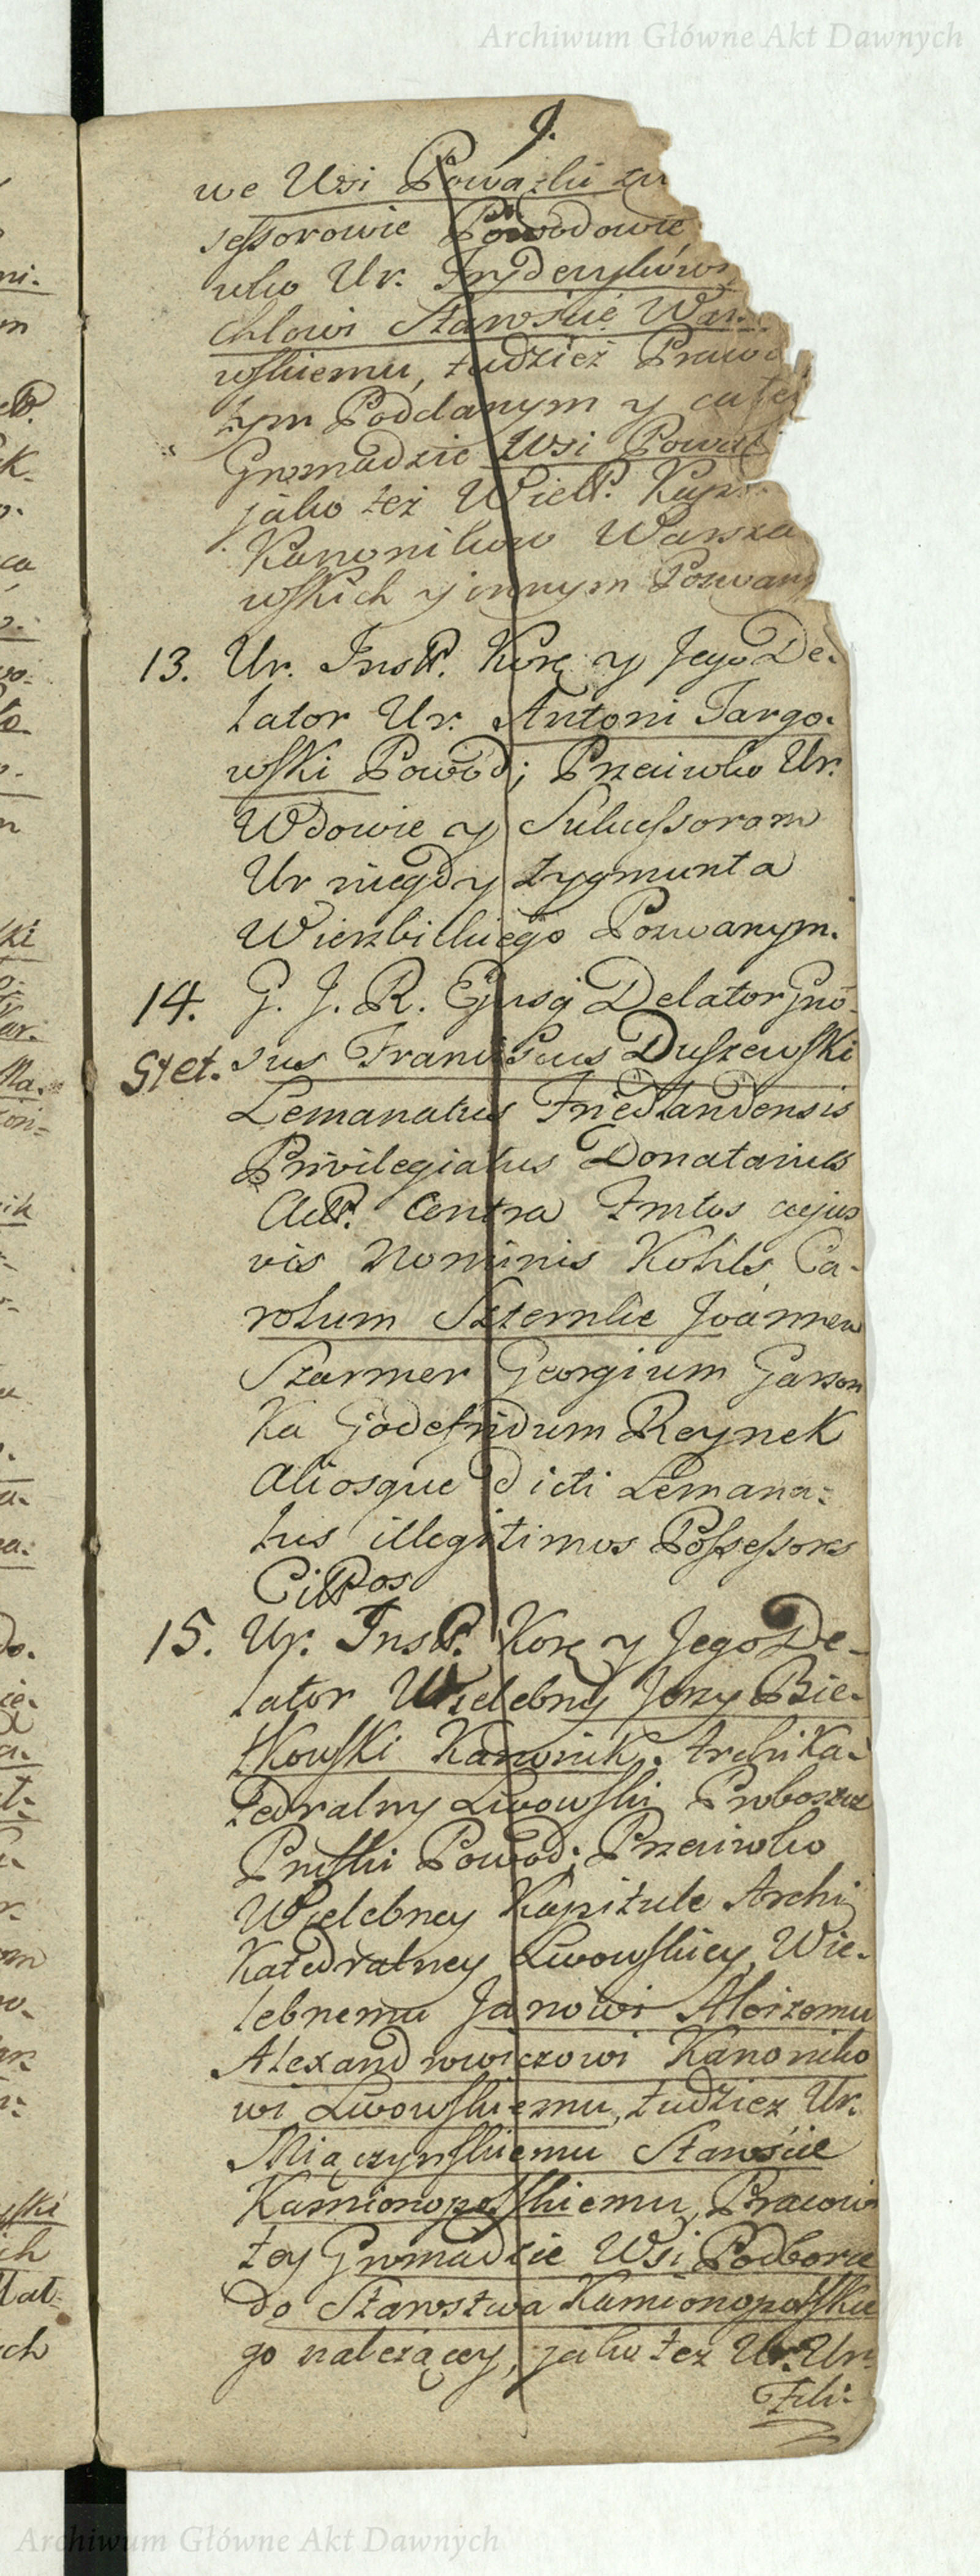 Archiwum Główne Akt Dawnych
9.
we Wsi Powązki
sessorowie Powodowie
wko Ur. Fryderykow
chlowi Staroście War.
wskiemu, tudzież Praco
tym Poddanym y całey
Gromadzie Wsi Powąz
jako też Wiel. Kapi
Kanonikow Warsza
wskich y innym Pozwany
13. Ur. Inst. Korę y Jego De-
lator Ur. Antoni Targo-
wski Powod; Przeciwko Ur.
Wdowie y Sukcessorom
Ur niegdy Zygmunta
Wierzbickiego Pozwanym.
14. G. J. R. Ejusq Delator Gnō-
Stet. sus Franciscus Duszewski
Lemanatus Friedlandensis
Privilegiatus Donatarius
Act. Contra Fmtos cujus
vis Nominis Kohls, Ca-
rolum Szternke Joannem
Szarmer Georgium Garson
Ka Godefridum Reynek
Aliosque dicti Lemana-
tus illegitimos Possessors
Cittos
15. Ur. Inst. Korę y Jego De-
lator Wielebny Jerzy Bie-
lkowski Kanonik Archika-
tedralny Lwowski Proboszcz
Powod; Przeciwko
Wielebney Kapitule Archi
Katedralney Lwowskiey, Wie-
lebnemu Janowi Aloizemu
Alexandrowiczowi Kanoniko
wi Lwowskiemu, tudzież Ur.
Miączyńskiemu Staroście
Kamionopolskiemu, Pracowi
tey Gromadzie Wsi Podborce
do Starostwa Kamionopolskie
go należącey, jako też Ur. Ur.
Feli-
Archiwum Główne Akt Dawnych